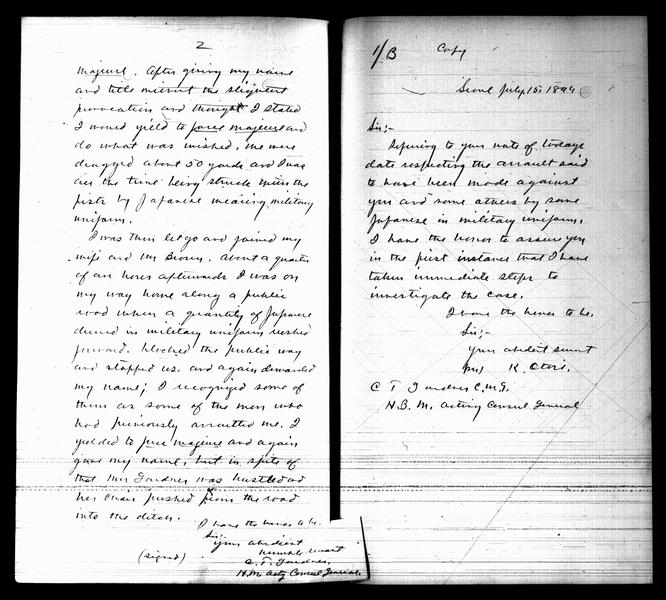 2
majeure. After giving my name
and title without the slightest
provocation and though I stated
I would yield to force majeure and
do what was wished, we were
dragged about 50 yards and I was
all the time being struck with the
fists by Japanese wearing military
uniform.
I was then let go and joined my
wife and Mr Brown. About a quarter
of an hour afterwards I was on
my way home along a public
road when a quantity of Japanese
dressed in military uniform rushed
forward, blocked the public way
and stopped us, and again demanded
my name; I recognized some of
them as some of the men who
had previously assaulted me. I
yielded to force majeure and again
gave my name, but in spite of
that Mrs Gardner was hustled and
her chair pushed from the road
into the ditch.
I have the honor to be.
Sir;-
Your obedient
humble servant
(signed) C. T. Gardner.
H.M. Actg Consul General.
1/B Copy
Seoul July 15, 1894
Sir;-
Refering to your note of todays
date respecting the assault said
to have been made against
you and some others by some
Japanese in military uniform.
I have the honor to assure you
in the first instance that I have
taken immediate steps to
investigate the case.
I have the honor to be.
Sir;-
Your obedient servt
K. Otori.
C T Gardner C.M.G.
H.B.M. Acting Consul General